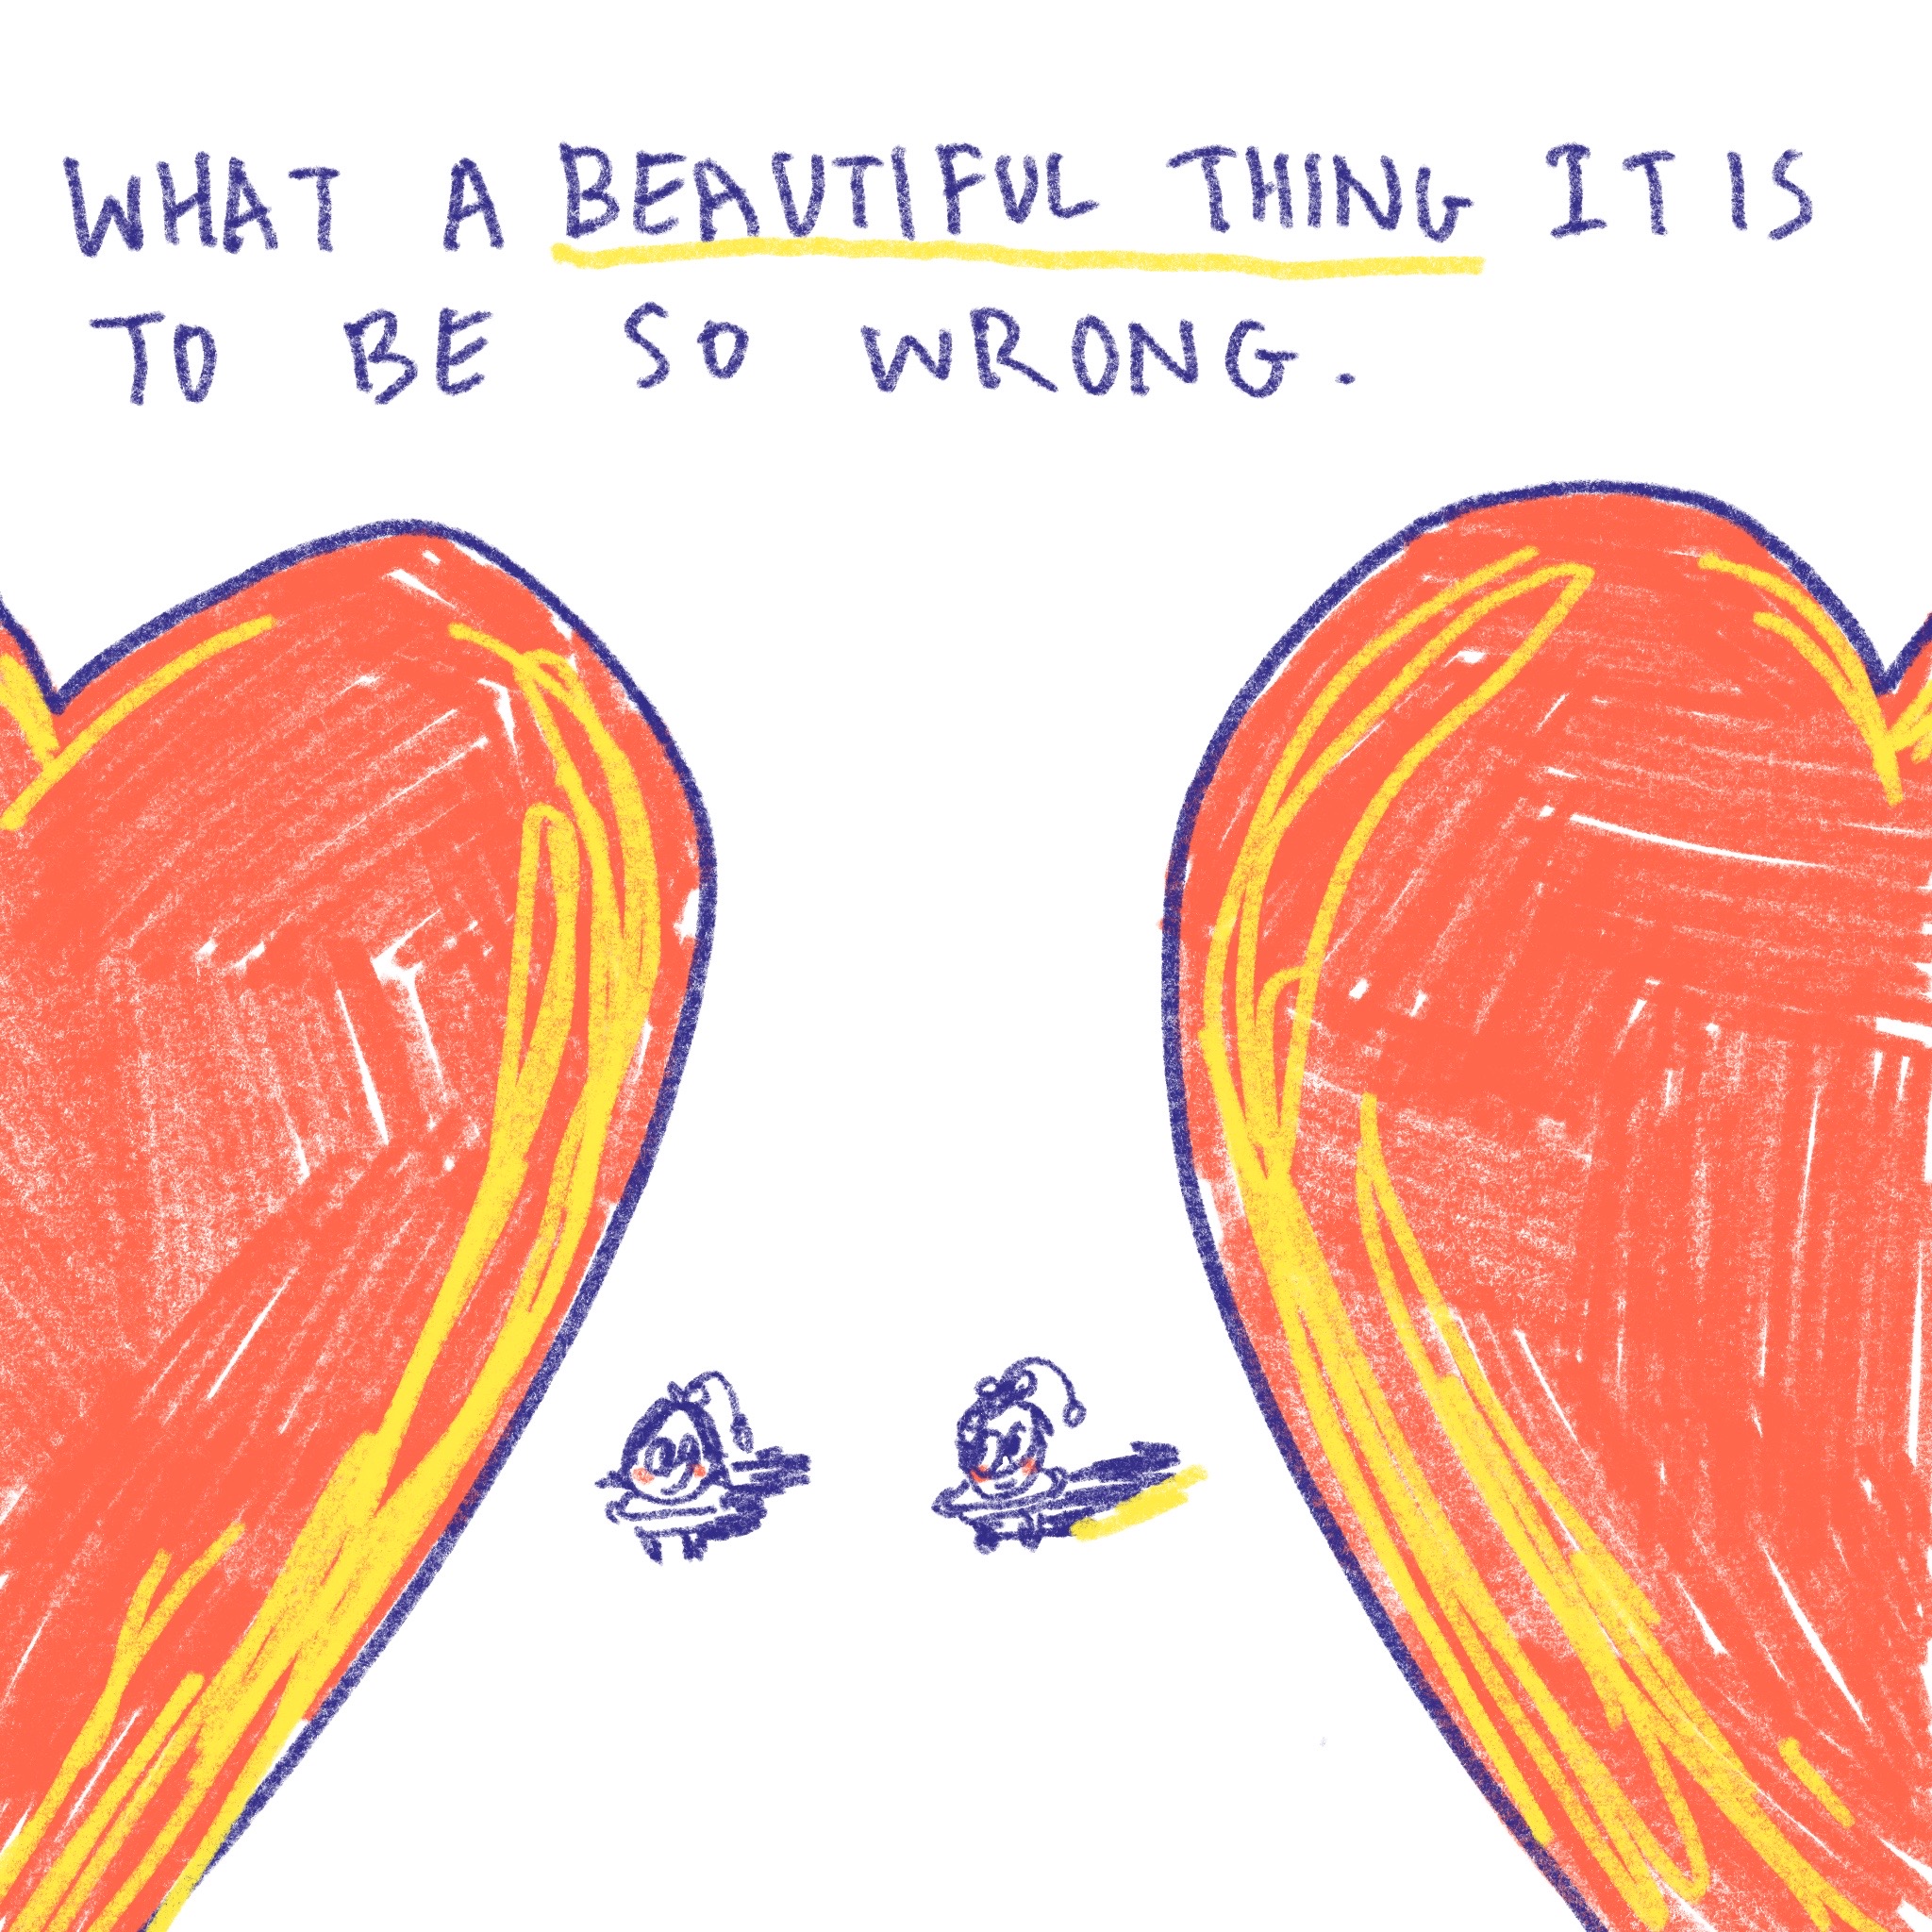 WHAT A BEAUTIFUL THING IT IS
TO BE SO WRONG.